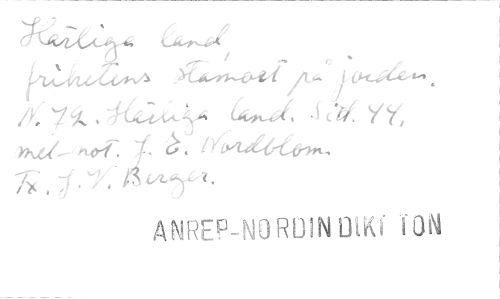 Härliga land,
frihetens stamort på jorden.
N. 72. Härliga land. Sid. 44.
mel-not. J. E. Nordblom.
Tx. J. V. Berger.
ANREP-NORDIN DIKT TON